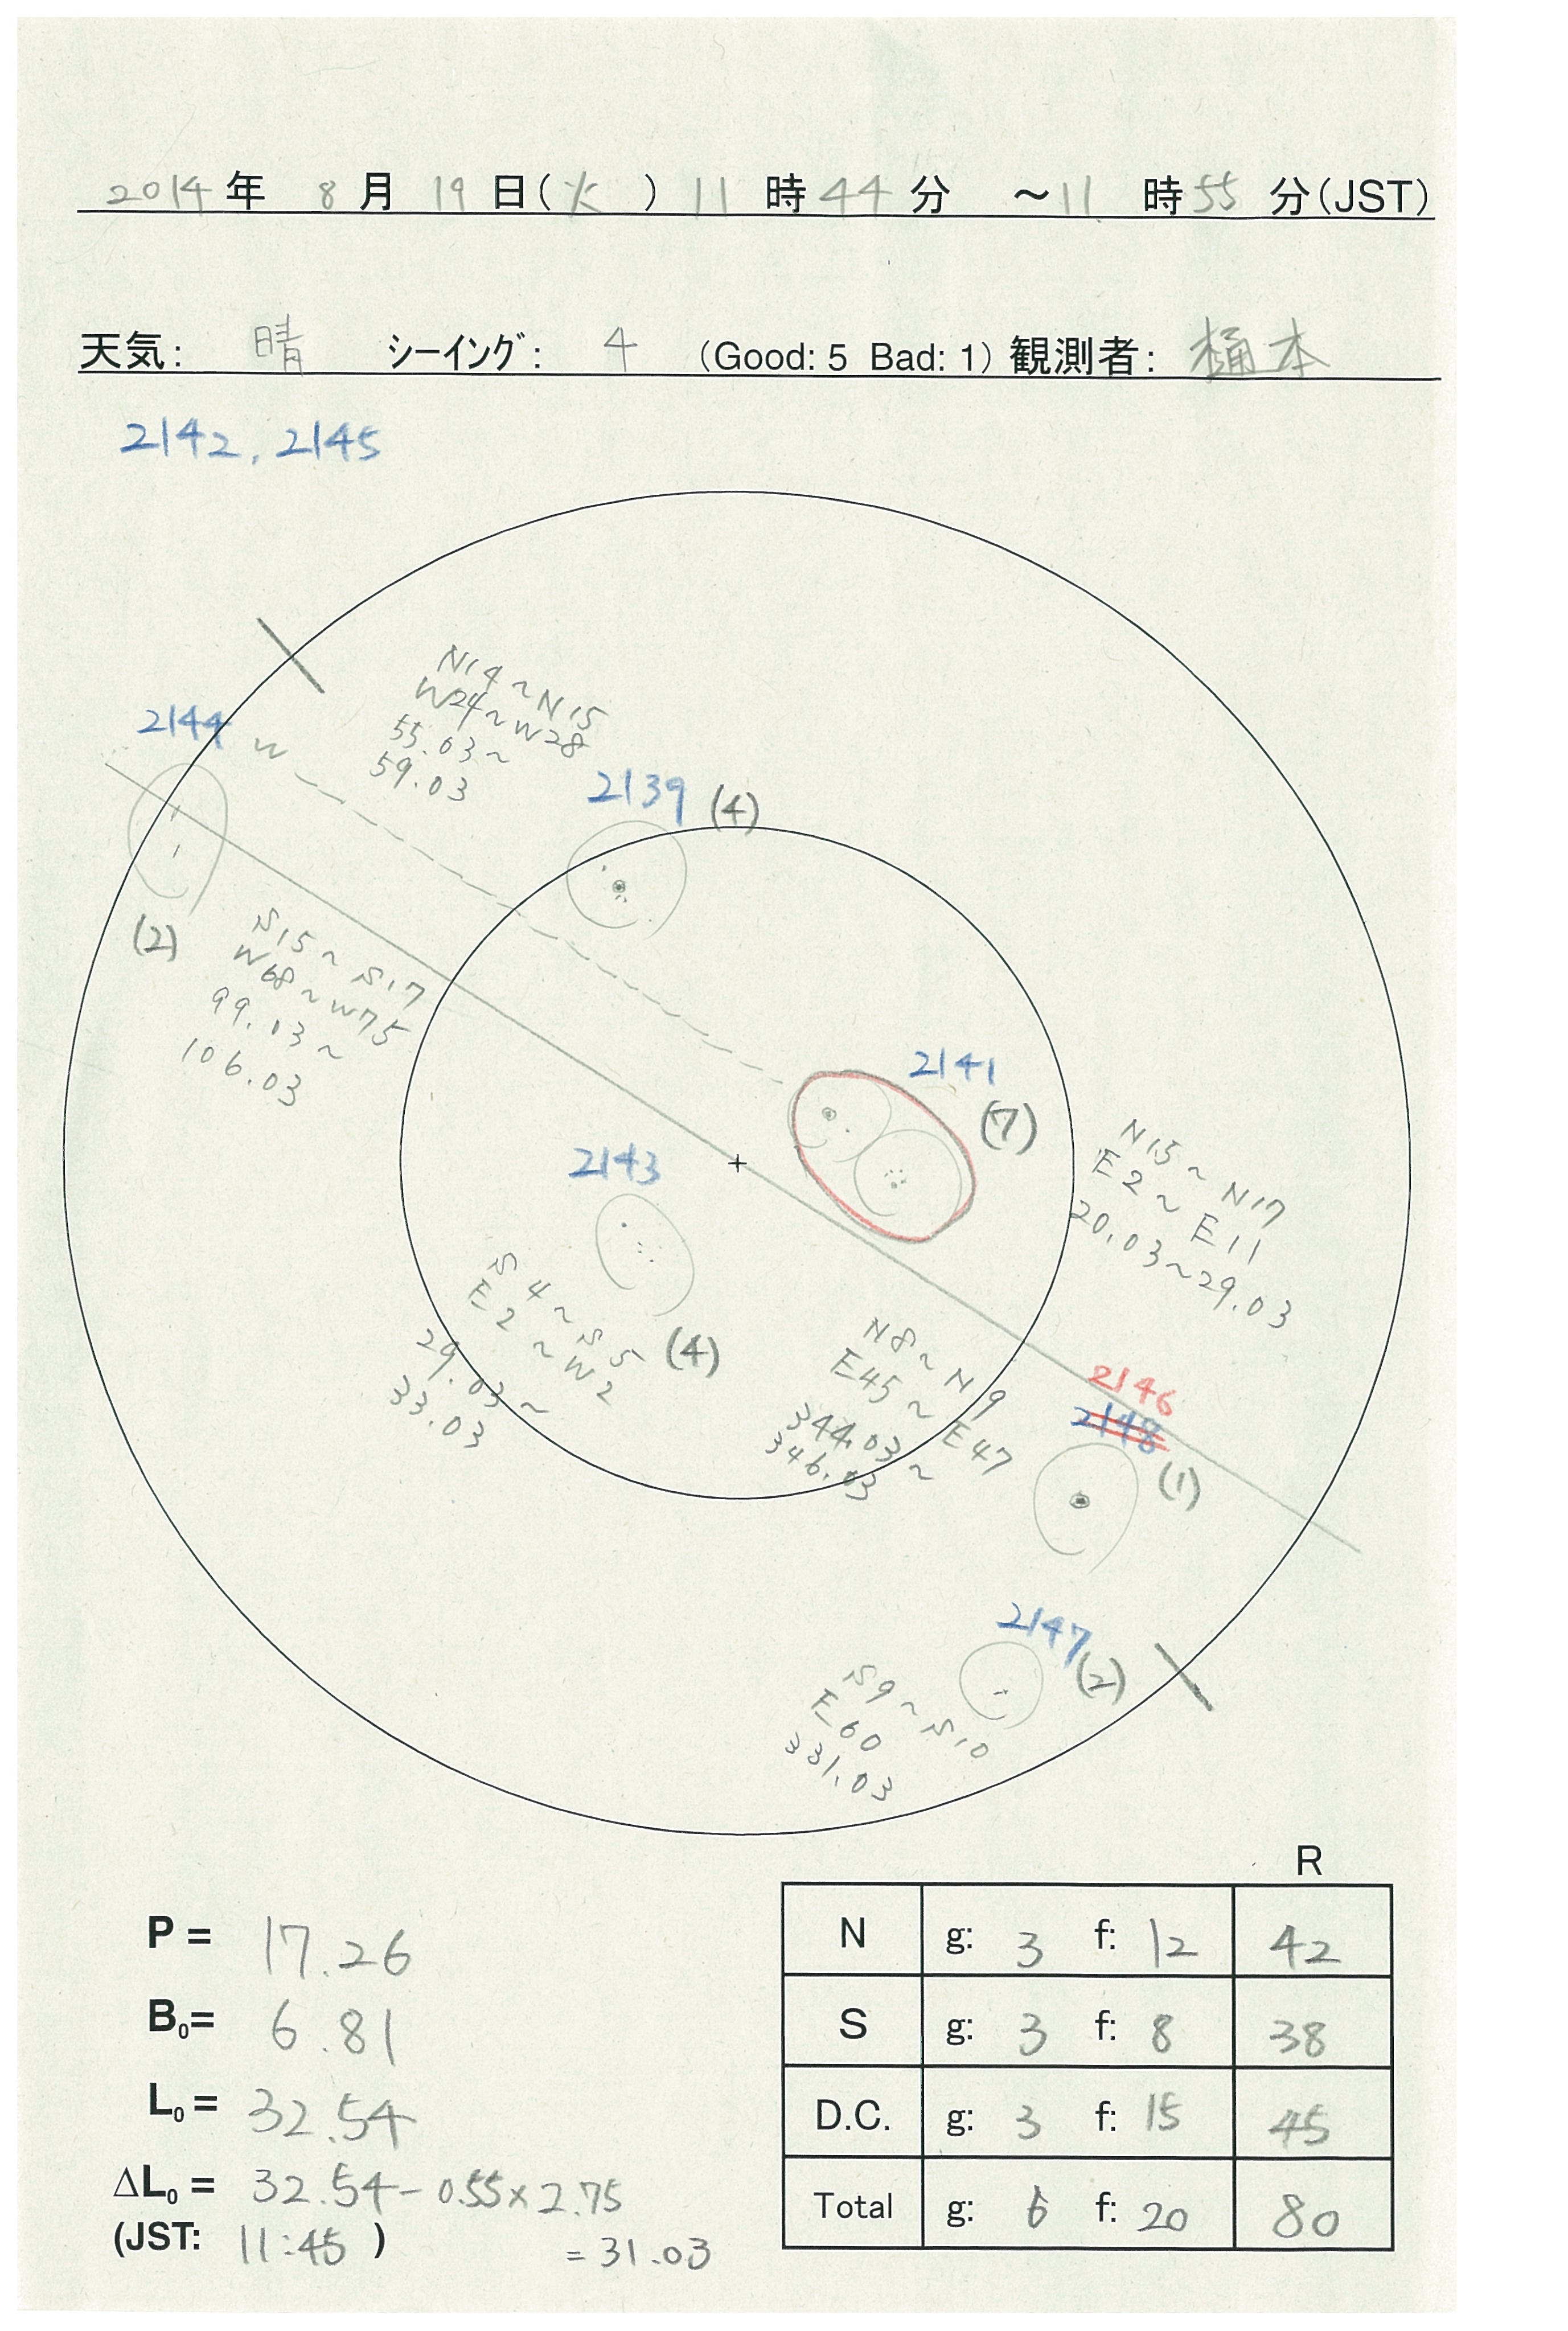 2014年 8月 19日(火) 11時44分 ～11時55分(JST)
天気: 晴 シーイング: 4 (Good: 5 Bad: 1) 観測者: 樋本
2142, 2145
N14~N15
W24~W28
55.03~
59.03
2144
W
2139 (4)
(2)
S15~S17
W68~W75
99.03~
106.03
2141
(7)
N15~N17
E2~E11
20.03~29.03
2143
S4~S5
E2~W2
29.03~
33.03
(4)
N8~N9
E45~E47
344.03~
346.03
2146
2148
(1)
2147
(2)
S9~S10
E60
331.03
R
N g: 3 f: 12 42
S g: 3 f: 8 38
D.C. g: 3 f: 15 45
Total g: 6 f: 20 80
P= 17.26
B0= 6.81
L0= 32.54
ΔL0= 32.54-0.55×2.75
(JST: 11:45) =31.03